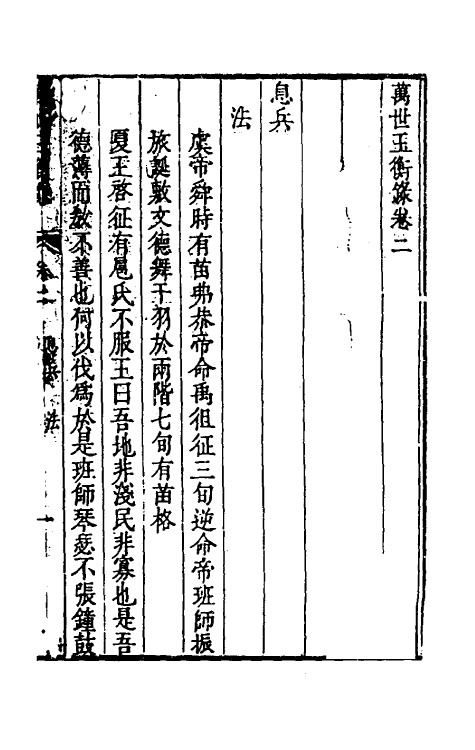 萬世玉衡錄卷二
息兵
法
虞帝舜時有苗弗恭帝命禹徂征三旬逆命帝班師振
旅誕敷文德舞干羽於兩階七旬有苗格
夏王啓征有扈氏不服王曰吾地非淺民非寡也是吾
德薄而教不善也何以伐爲於是班師琴瑟不張鐘鼓
卷二
法
一